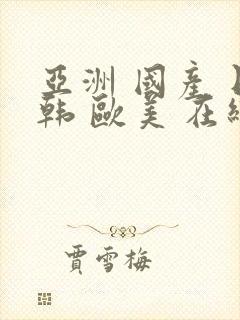 亞洲 國産
韩 歐美 在
賈雪梅